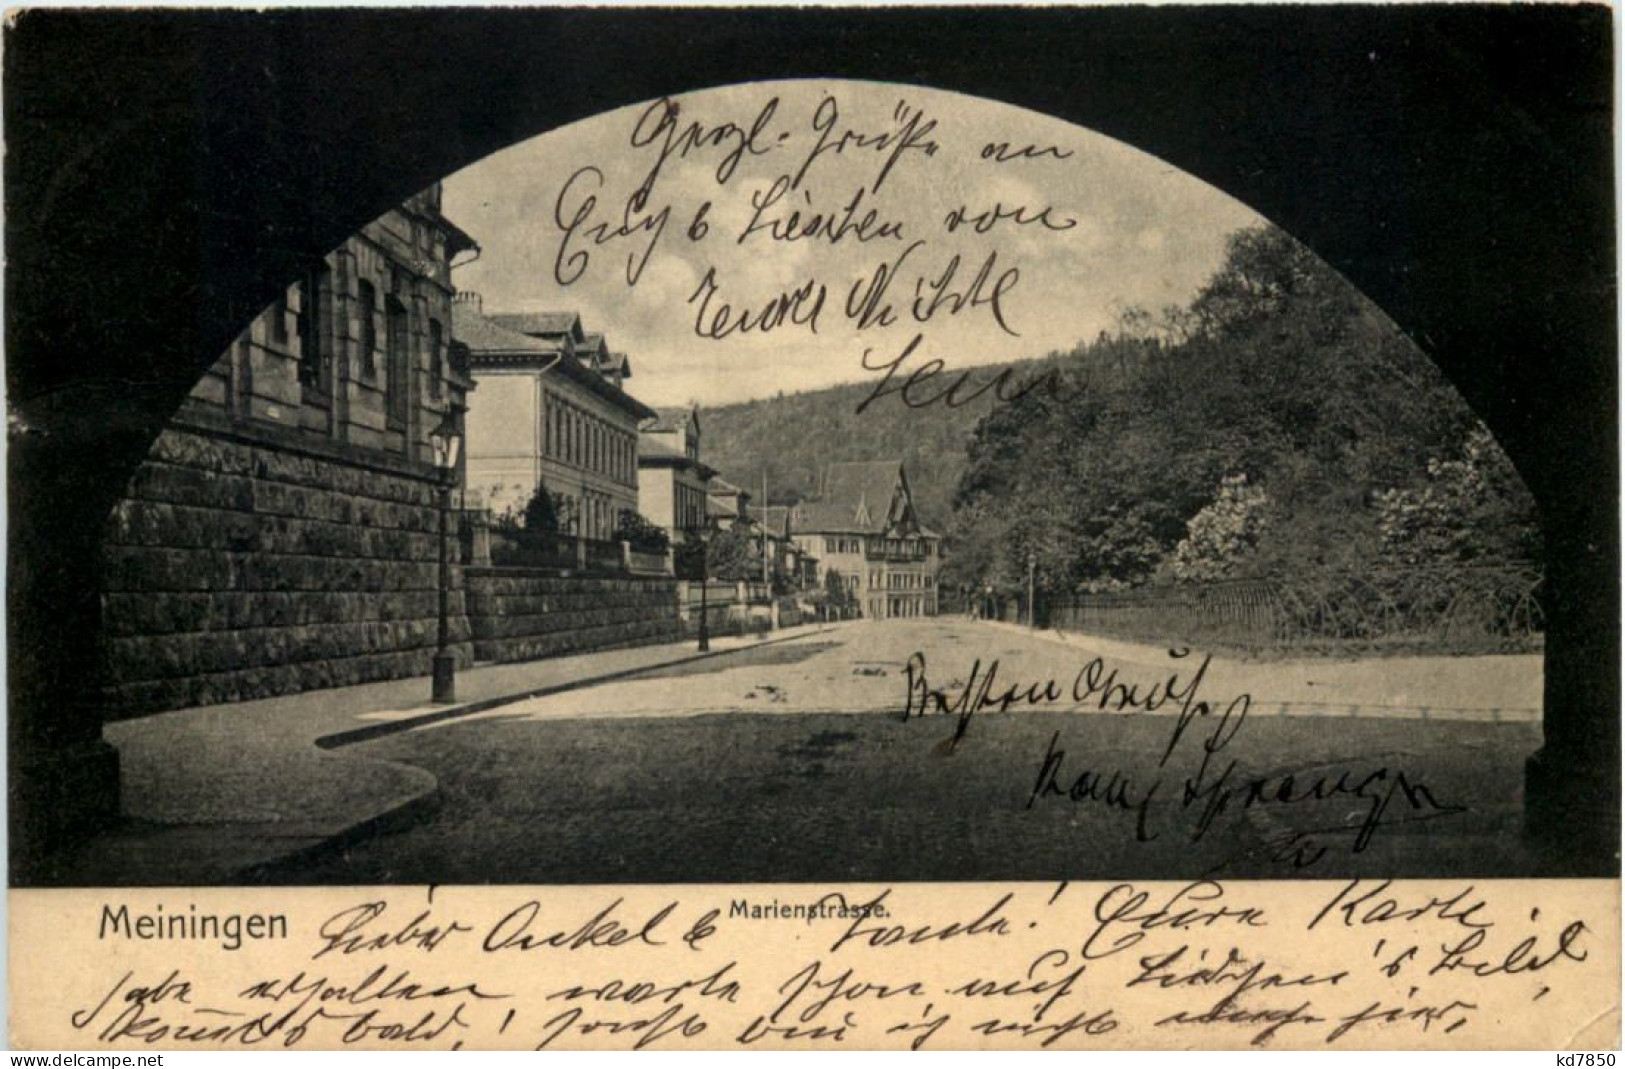 Herzl. Grüße an
Euch & Lieschen von
Eurer Nichte
Leni
Besten Gruß
Meiningen
Marienstrasse.
Lieber Onkel & Tante! Eure Karte
habe erhalten warte schon auf Lieschen's Bild,
kommt's bald,! sonst bin ich nicht mehr hier,
www.delcampe.net
kd7850